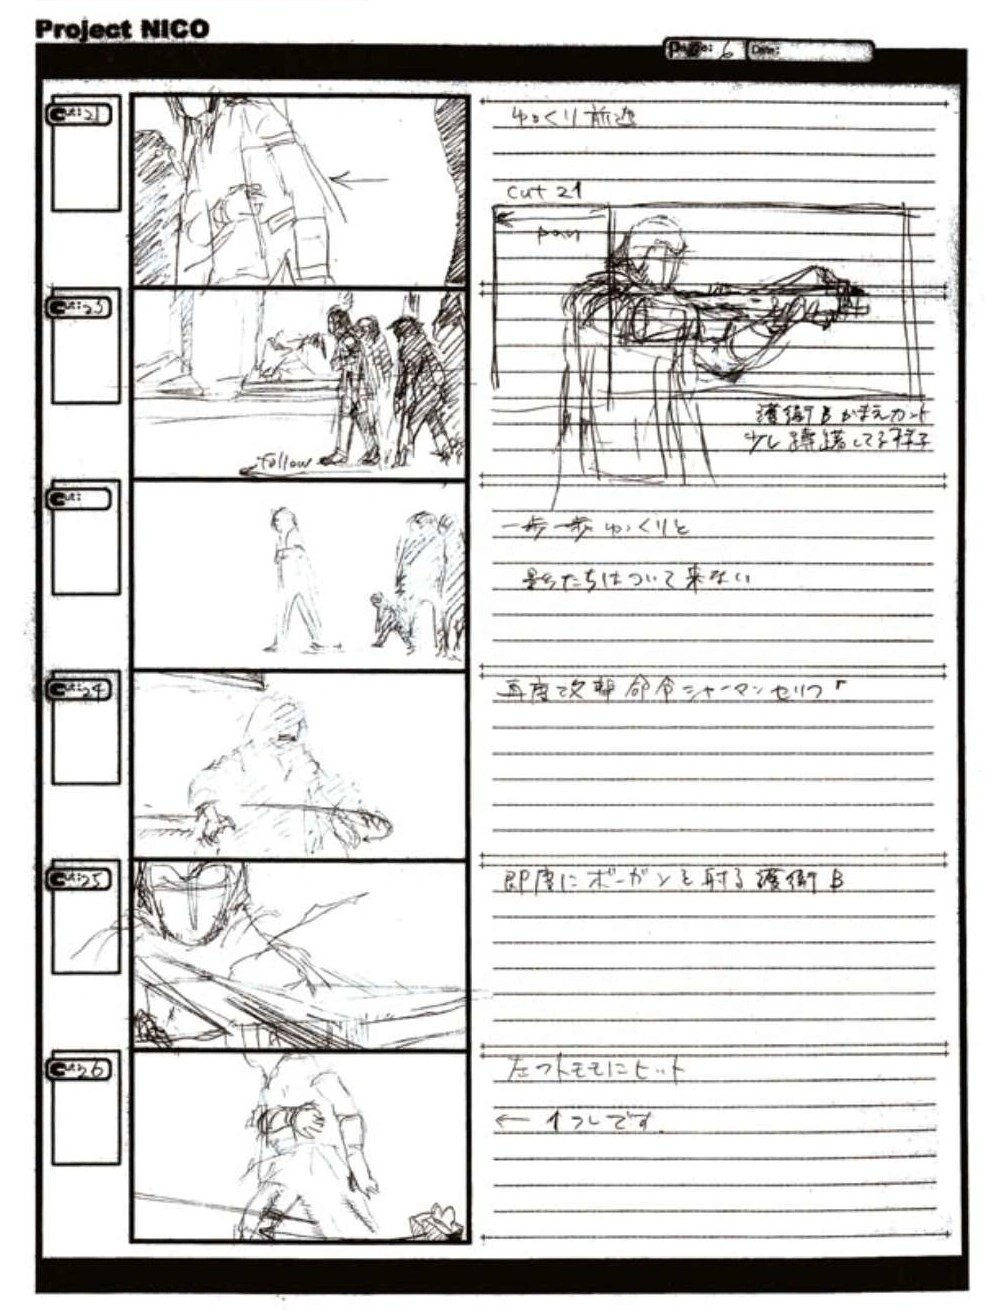 Project NICO
Page: 6 Date:
Cut: 21
ゆっくり前進
cut 21
pan
Cut: 23
護衛Bかまえカット
少し躊躇してる様子
Follow
Cut:
一歩一歩ゆっくりと
たちはついて来ない
Cut: 24
再度攻撃命令シャーマンセリフ「
Cut: 25
即座にボーガンを射る護衛B
Cut: 26
左フトモモにヒット
← イフレです